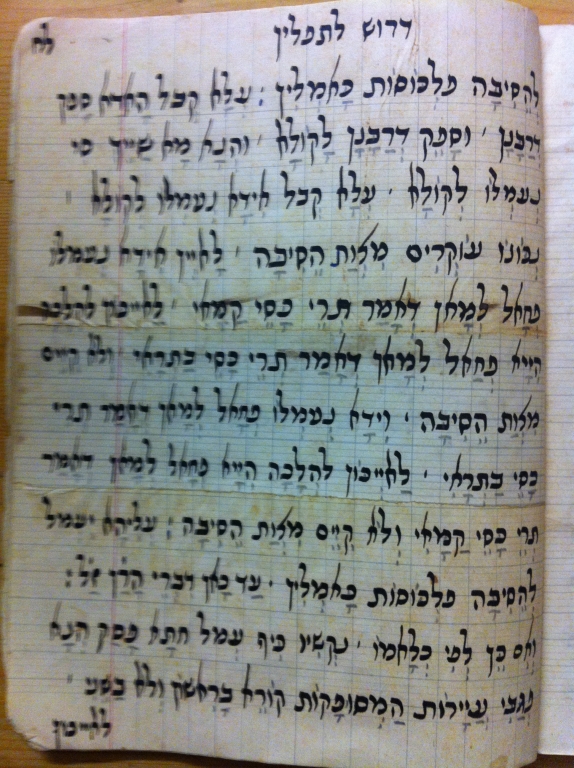 דרוש לתפלין
לח
להסיבה פלכוסות כאמלין : עלא קבל האדא ספק
דרבנן ' וספק דרבנן לקולא ' והנא מא שייך סי
נעמלו לקולא ' עלא קבל אידא נעמלו לקולא "
נכונו עוקרים מצות הסיבה ' לאיין אידא נעמלו
פחאל למאן דאמר תרי כסי קמאי ' לאייכון להלכה
הייא פחאל למאן דאמר תרי כסי בתראי ' ולא קיים
מצות הסיבה ' וידא נעמלו פחאל למאן דאמר תרי
כסי בתראי ' לאייכון להלכה הייא פחאל למאן דאמר
תרי כסי קמאי ולא קיים מצות הסיבה : עליהא יעמל
להסיבה פלכוסות כאמלין ' עד כאן דברי הר"ן ז"ל :
ואם כן לפי כלאמו ' נקשיו כיף עמל חתא פסק הנא
פגבי עיירות המסופקות קורא בראשון ולא בשני "
לאייכון